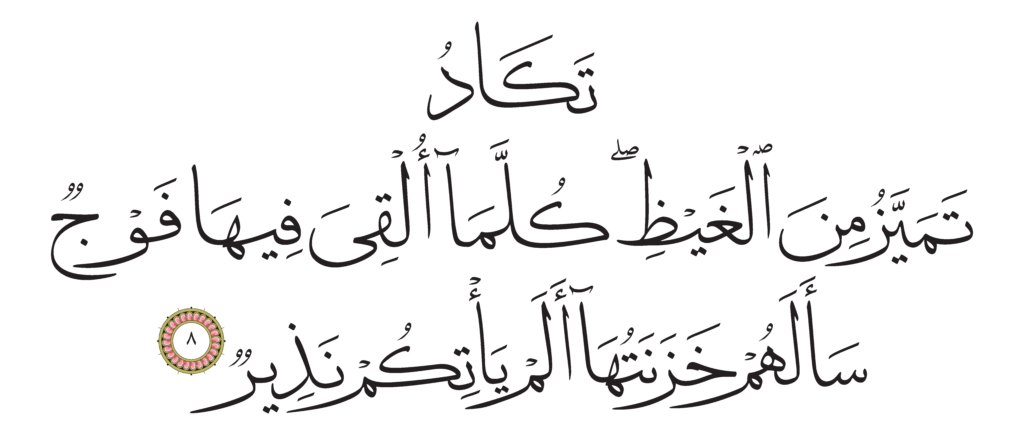 تَكَادُ
تَمَيَّزُ مِنَ ٱلْغَيْظِ ۖ كُلَّمَآ أُلْقِىَ فِيهَا فَوْجٌ
سَأَلَهُمْ خَزَنَتُهَآ أَلَمْ يَأْتِكُمْ نَذِيرٌ ٨